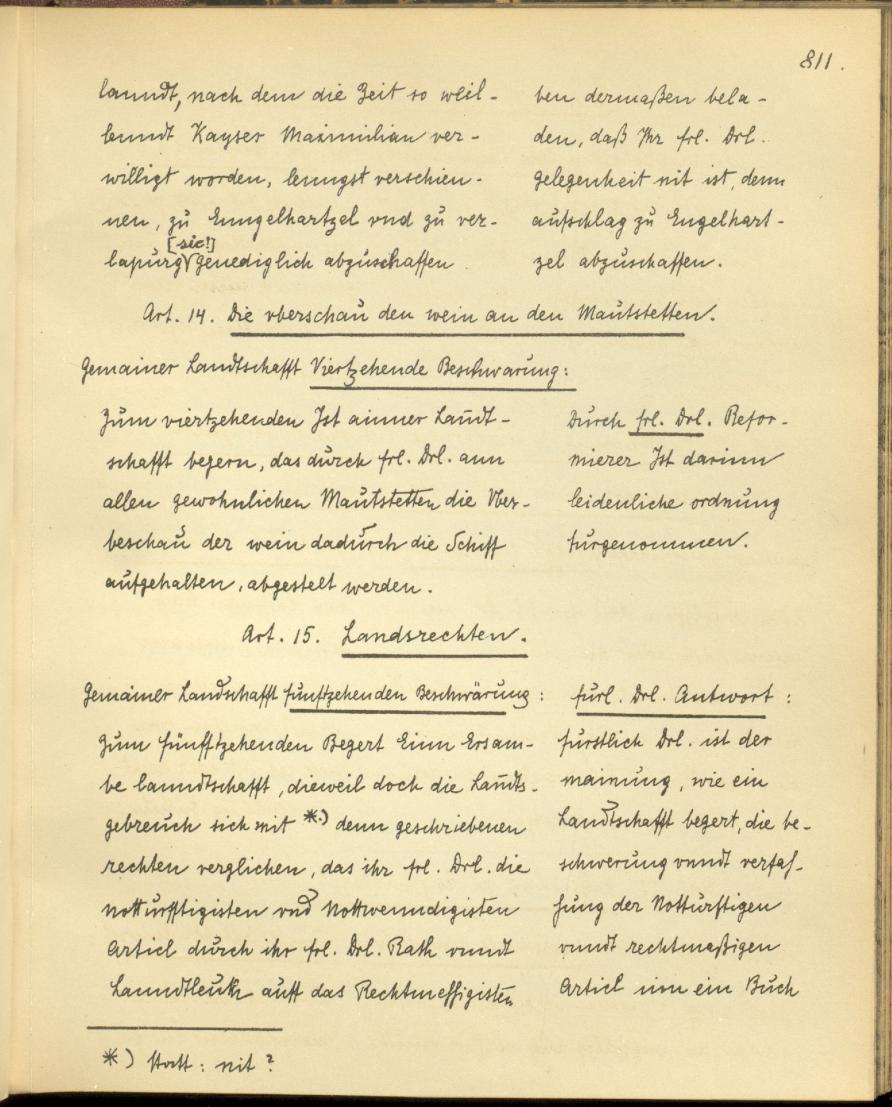 811.
lanndt, nach dem die Zeit so weil-
lenndt Kayser Maximilian ver-
willigt worden, lenngst verschien-
nen, zu Enngelhartzel vnd zu ver-
[sic!]
lapurg genediglich abzuschaffen
ben dermaßen bela-
den, daß Ihr frl. Drl.
gelegenheit nit ist, denn
aufschlag zu Engelhart-
zel abzuschaffen.
Art. 14. Die vberschau den wein an den Mautstetten.
Gemainer Landtschafft Viertzehende Beschwarung:
Zum viertzehenden Ist ainner Landt-
schafft begern, das durch frl. Drl. ann
allen gewohnlichen Mautstetten die Vber-
beschau der wein dadurch die Schiff
aufgehalten, abgestelt werden.
Durch frl. Drl. Refor-
mierer Ist darinn
leidenliche ordnung
furgenommen.
Art. 15. Landsrechten.
Gemainer Landschafft funftzehenden Beschwärung:
Zum fünfftzehenden Begert Einn Ersam-
be lanndtschafft, dieweil doch die Landts-
gebreuch sich mit *) denn geschriebenen
rechten verglichen, das ihr frl. Drl. die
notturfftigisten vnd Nottwenndigisten
Articl durch ihr frl. Drl. Rath vnndt
Lanndtleuth auff das Rechtmessigisten
fürl. Drl. Antwort:
fürstlich Drl. ist der
mainung, wie ein
Landtschafft begert, die be-
schwerung vnndt verfas-
sung der Notturftigen
vnndt rechtmaßigen
Articl inn ein Buch
*) statt: nit?